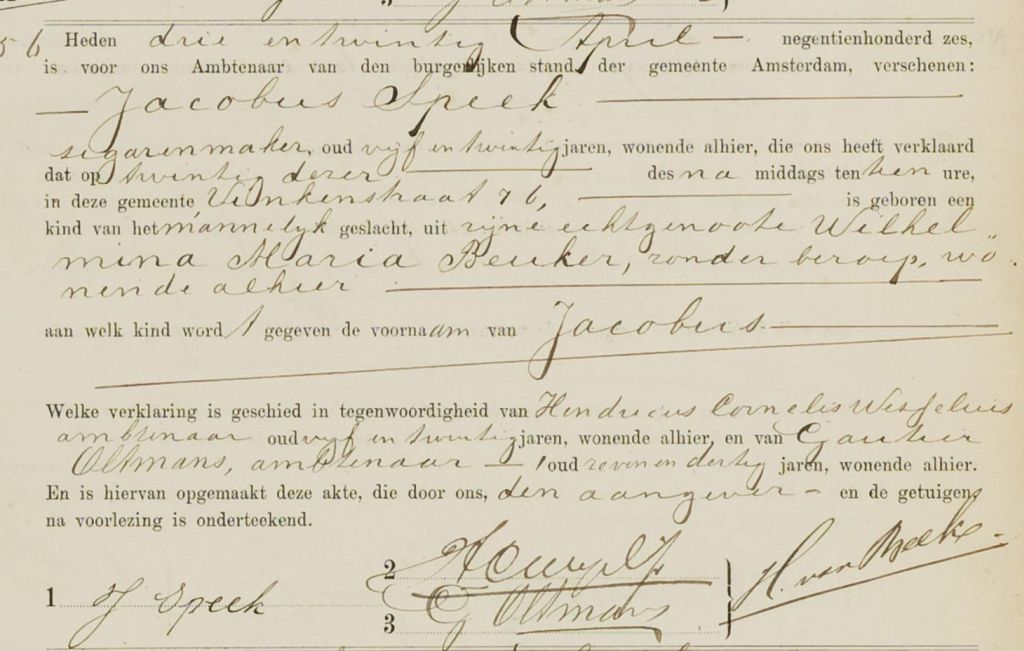 56 Heden drie en twintig April — negentienhonderd zes,
is voor ons Ambtenaar van den burgerlijken stand der gemeente Amsterdam, verschenen:
— Jacobus Speek —
sigarenmaker, oud vijf en twintig jaren, wonende alhier, die ons heeft verklaard
dat op twintig dezer — des na middags ten tien ure,
in deze gemeente, Vinkenstraat 76, — is geboren een
kind van het mannelijk geslacht, uit zijne echtgenoote Wilhel„
mina Maria Beuker, zonder beroep, wo„
nende alhier —
aan welk kind word t gegeven de voornaam van Jacobus —
Welke verklaring is geschied in tegenwoordigheid van Hendricus Cornelis
ambtenaar oud vijf en twintig jaren, wonende alhier, en van Gautier
Oltmans, ambtenaar — , oud zeven en dertig jaren, wonende alhier.
En is hiervan opgemaakt deze akte, die door ons, den aangever — en de getuigen
na voorlezing is onderteekend.
1 J Speek
2
3 G Oltmans
H. van Beek